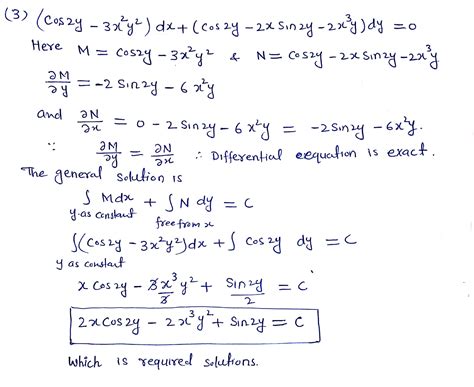 (3) (cos2y - 3x²y²) dx + (cos2y - 2x sin2y - 2x³y) dy = 0
Here M = cos2y - 3x²y² & N = cos2y - 2x sin2y - 2x³y
∂M/∂y = -2 sin2y - 6x²y
and ∂N/∂x = 0 - 2 sin2y - 6x²y = -2sin2y - 6x²y.
∵ ∂M/∂y = ∂N/∂x ∴ Differential eequation is exact.
The general solution is
∫ Mdx + ∫ N dy = C
y as constant free from x
∫(cos2y - 3x²y²)dx + ∫ cos2y dy = C
y as constant
x cos2y - 3x³/3 y² + sin2y/2 = C
2x cos2y - 2x³y² + sin2y = C
which is required solutions.